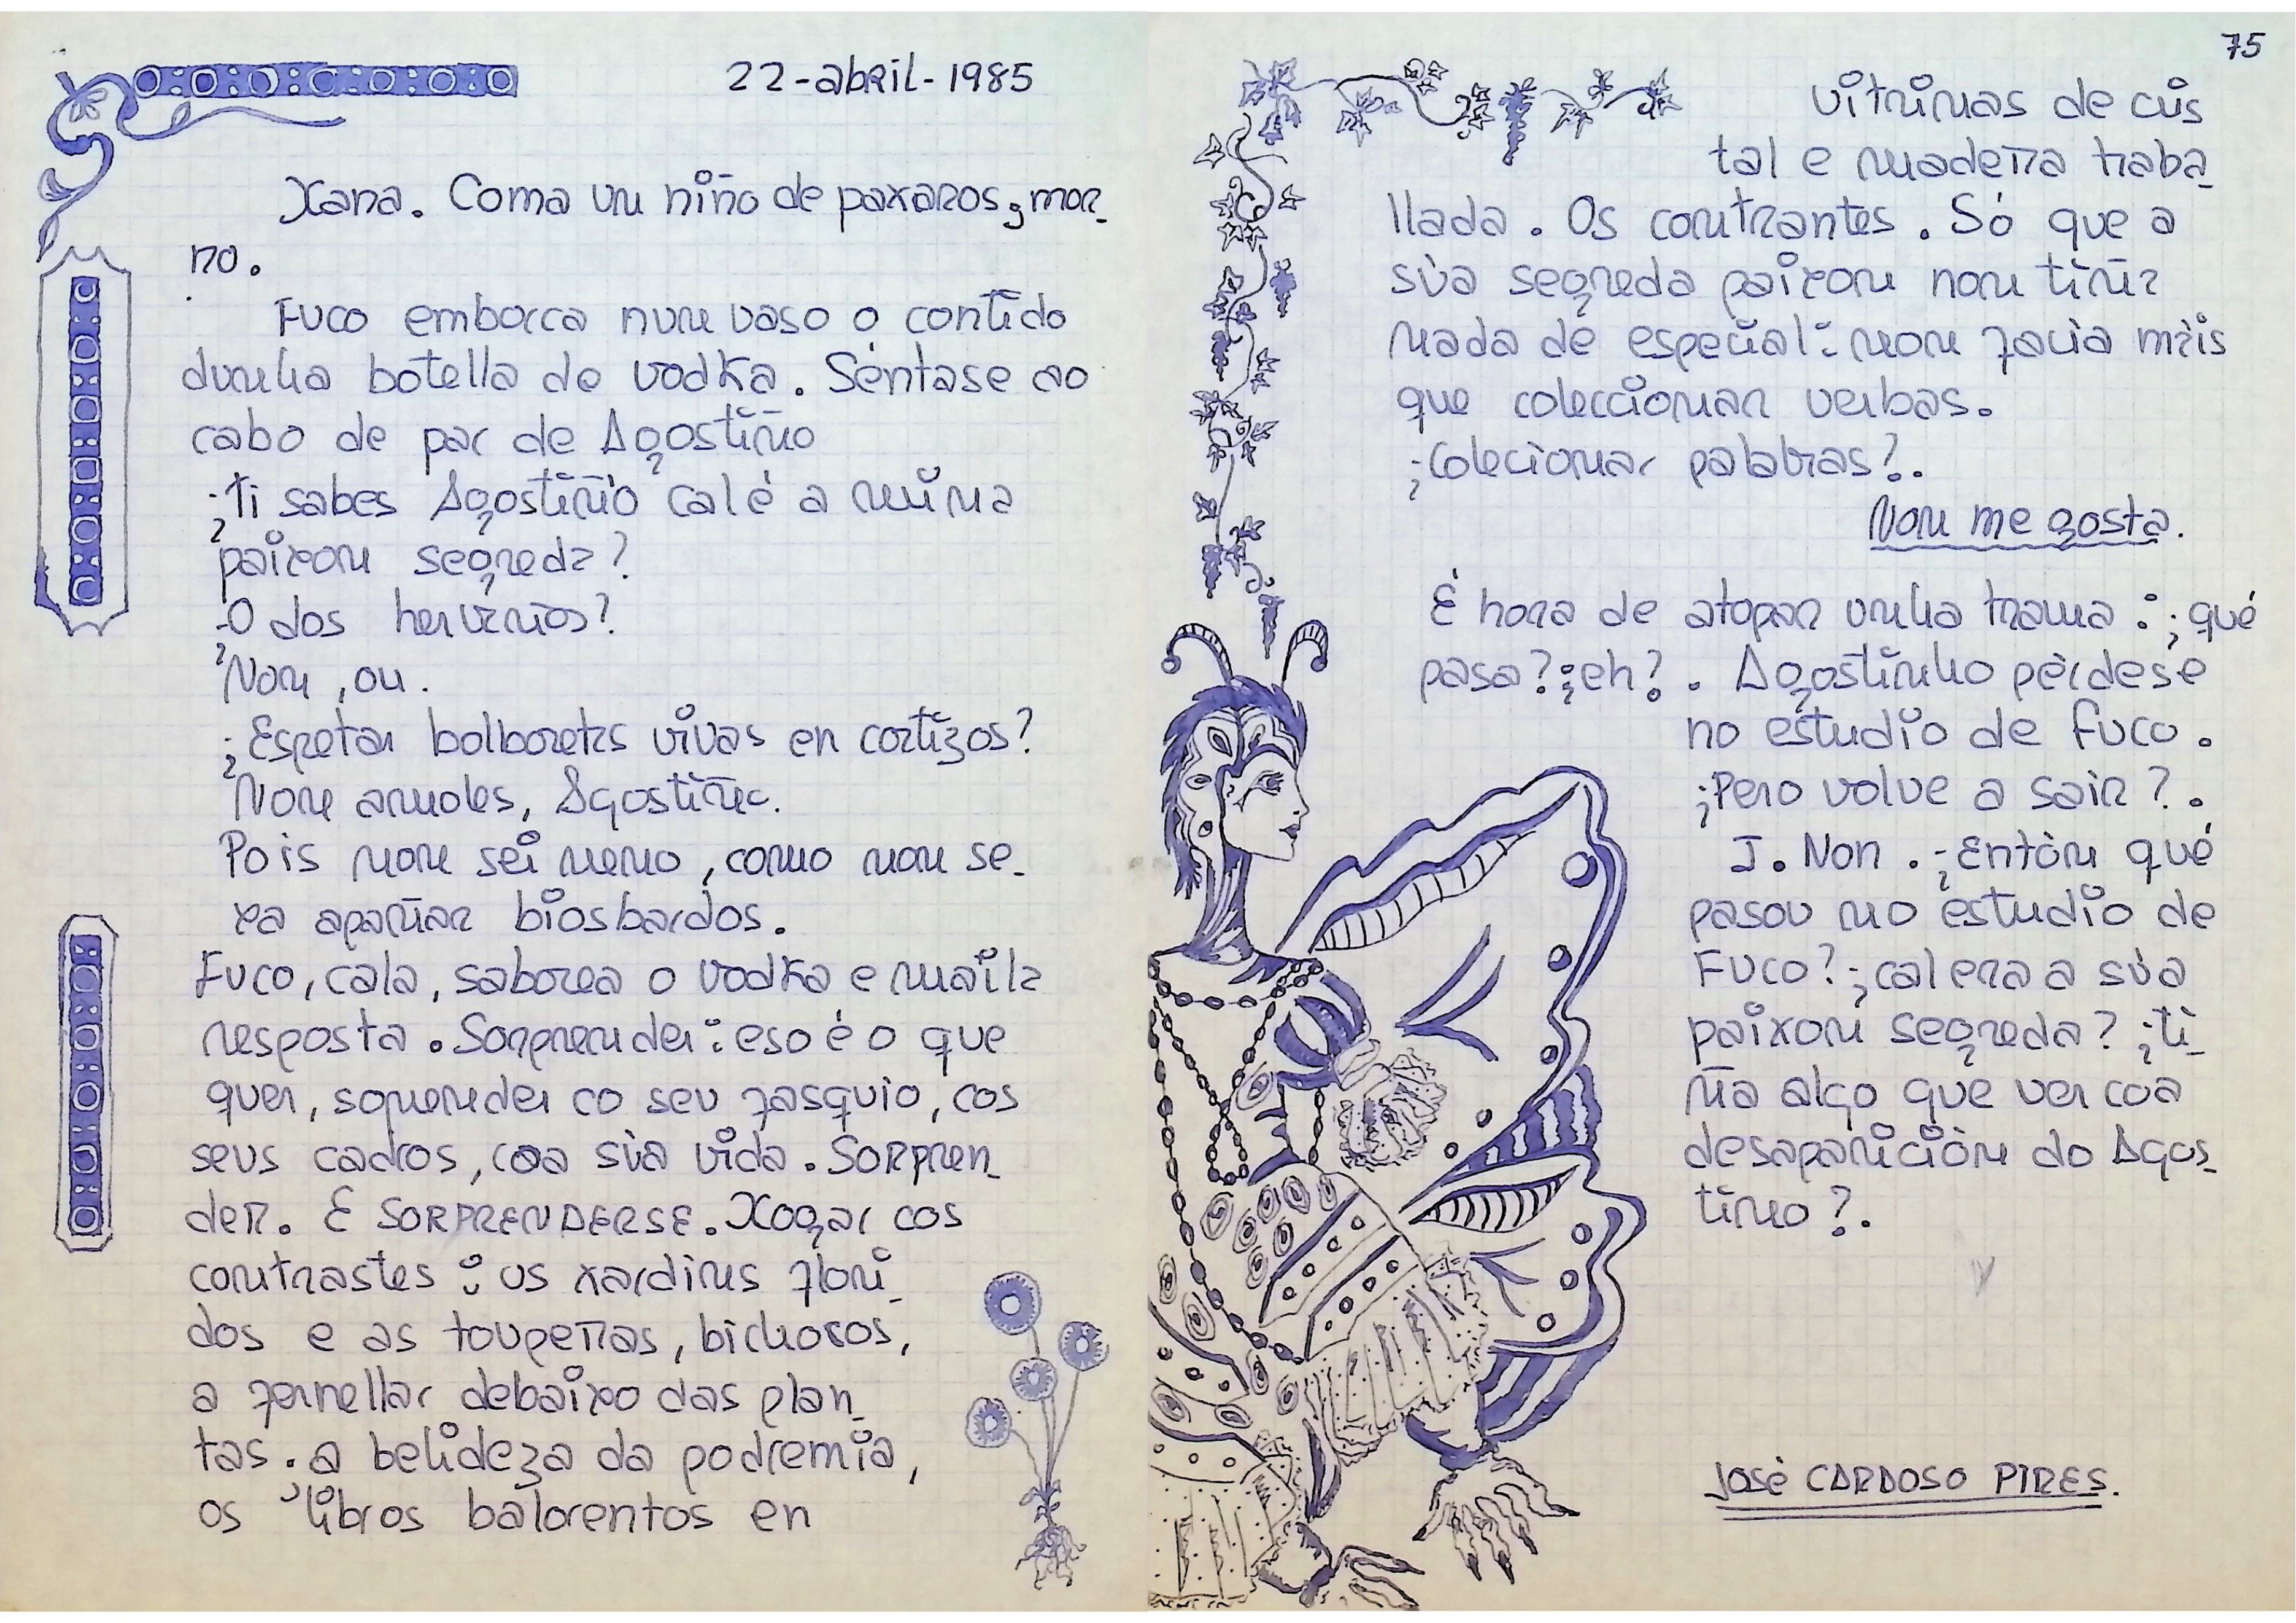 22-abril-1985
Xana. Coma un niño de paxaros, mor-
no.
Fuco emborca num vaso o contido
dunha botella de vodka. Séntase ao
cabo de par de Agostiño
¿Ti sabes Agostiño cal é a miña
paixom segreda?
¿O dos hervirios?
Nom, ou.
¿Espetar bolboretas vivas en cortizos?
Nom amoles, Agostiño.
Pois nom sei meno, como nom se-
xa apañar biosbardos.
Fuco, cala, saborea o vodka e mailа
resposta. Sorprender: eso é o que
quer, soprender co seu fasquio, cos
seus cadros, coa súa vida. Sorpren-
der. E SORPRENDERSE. Xogar cos
contrastes: os xardins flori-
dos e as toupeiras, bichocos,
a fernellar debaixo das plan-
tas. a belideza da podremia,
os libros balorentos en
75
vitrinas de cris
tal e madeira traba-
llada. Os contrantes. Só que a
súa segreda paixom nom tiña
nada de especial: nom facia máis
que coleccionar verbas.
¿Colecionar palabras?.
Nom me gosta.
É hora de atopar unha trama: ¿qué
pasa? ¿eh?. Agostinho pérdese
no estudio de Fuco.
¿Pero volve a sair?.
J. Non. ¿Entóm qué
pasou no estudio de
Fuco? ¿cal era a súa
paixom segreda? ¿ti-
ña algo que ver coa
desaparicióm do Agos-
tiño?.
José CARDOSO PIRES.